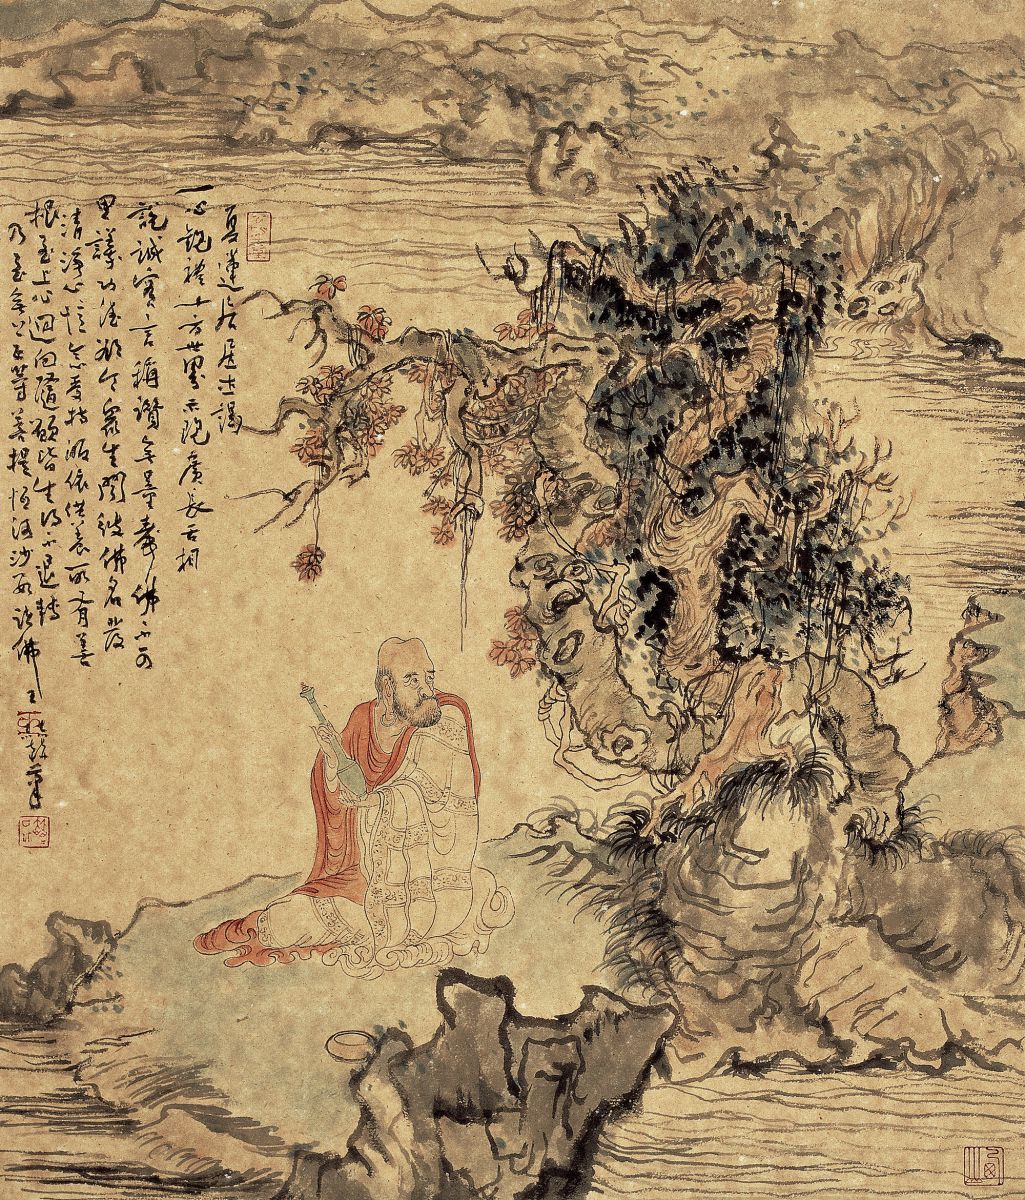 夏蓮居居士謁
一心觀禮十方世界示現廣長舌相
說誠實言稱讚無量壽佛不可
思議功德欲令眾生聞彼佛名發
清淨心憶念受持歸依供養所有善
根至上心迴向隨願皆生得不退轉
乃至無上正等菩提恒河沙數諸佛